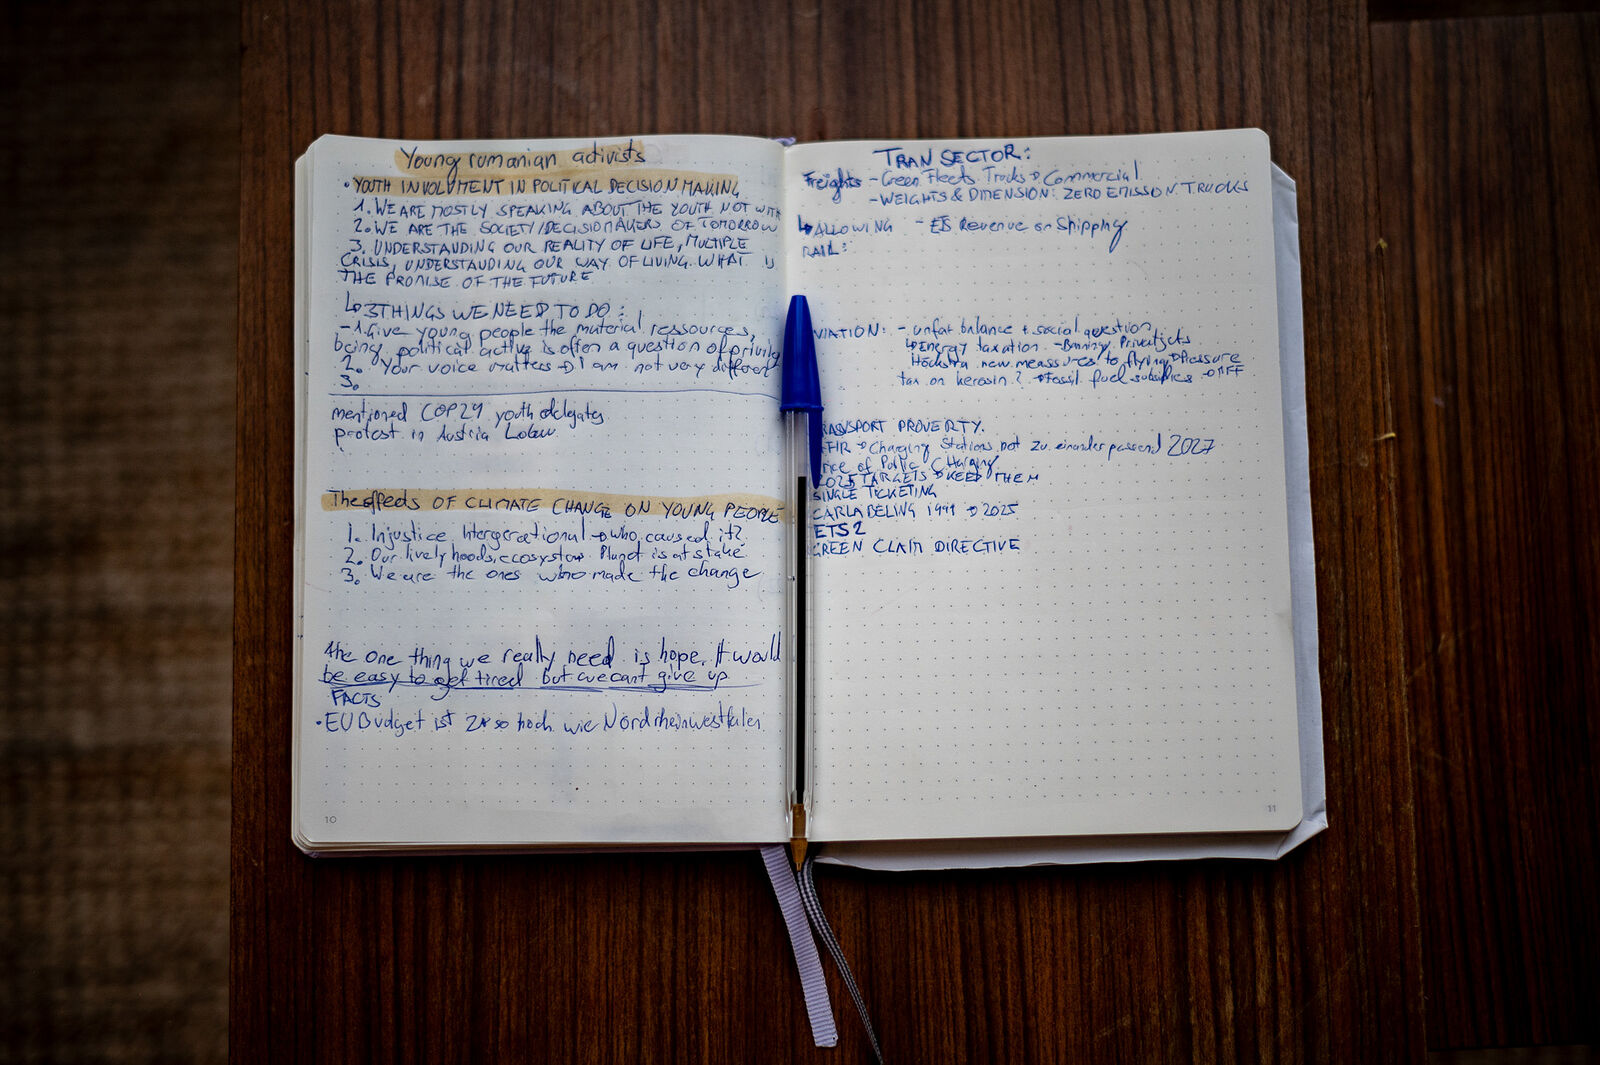 Young rumanian activists
• YOUTH INVOLVMENT IN POLITICAL DECISION MAKING
1. WE ARE MOSTLY SPEAKING ABOUT THE YOUTH NOT WITH
2. WE ARE THE SOCIETY/DECISIONMAKERS OF TOMORROW
3. UNDERSTANDING OUR REALITY OF LIFE, MULTIPLE
CRISIS, UNDERSTANDING OUR WAY OF LIVING. WHAT IS
THE PROMISE OF THE FUTURE
↳ 3 THINGS WE NEED TO DO:
- 1. Give young people the material ressources,
being political active is often a question of privilig
2. Your voice matters → I am not very different
3.
mentioned COP29 youth delegates
protest in Austria
The effects OF CLIMATE CHANGE ON YOUNG PEOPLE
1. Injustice Intergenerational → who caused it?
2. Our livelyhoods, ecosystem Planet is at stake
3. We are the ones who made the change
the one thing we really need is hope. It would
be easy to get tired but we cant give up
FACTS
• EU Budget ist 2x so hoch wie Nordrheinwestfalen
10
TRAN SECTOR:
Freights - Green Fleets Trucks → Commercial
- WEIGHTS & DIMENSION: ZERO EMISSION TRUCKS
↳ ALLOWING - ETS Revenue on Shipping
RAIL:
VIATION: - unfair balance + social question
↳ Energy taxation - Banning Privatjets
new meassures to flying → Pressure
tax on kerosin? → Fossil fuel subsidies → MFF
TRANSPORT PROVERTY.
AFIR → Charging Stations not zu einander passend 2027
Price of Public Charging
2025 TARGETS → KEEP THEM
SINGLE TICKETING
CARLABELING 1999 → 2025
ETS 2
GREEN CLAIM DIRECTIVE
11